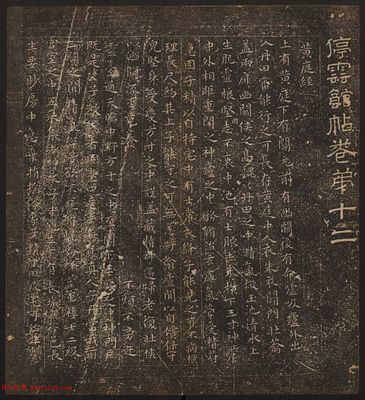 停雲館帖卷第十二
黃庭經
上有黃庭下有關元前有幽闕後有命門噓吸廬外出
入丹田審能行之可長存黃庭中人衣朱衣關門壯籥
蓋兩扉幽闕俠之高巍巍丹田之中精氣微玉池清水上
生肥靈根堅志不衰中池有士服赤朱橫下三寸神所居
中外相距重閉之神廬之中務脩治玄廱氣管受精符
急固子精以自持宅中有士常衣絳子能見之可不病橫
理長尺約其上子能守之可無恙呼噏廬間以自償保守
完堅身受慶方寸之中謹蓋藏精神還歸老復壯俠
以幽闕流下竟 不須不旁迕
靈臺通天臨中野方寸之中至關下玉房之中神門戶
既是公子教我者明堂四達法海員真人子丹當我前
三關之間精氣深 重樓十二級
宮室之中五采集赤神之子中池立下有長城玄谷邑長
生要眇房中急棄捐 專子精寸田尺宅可治生